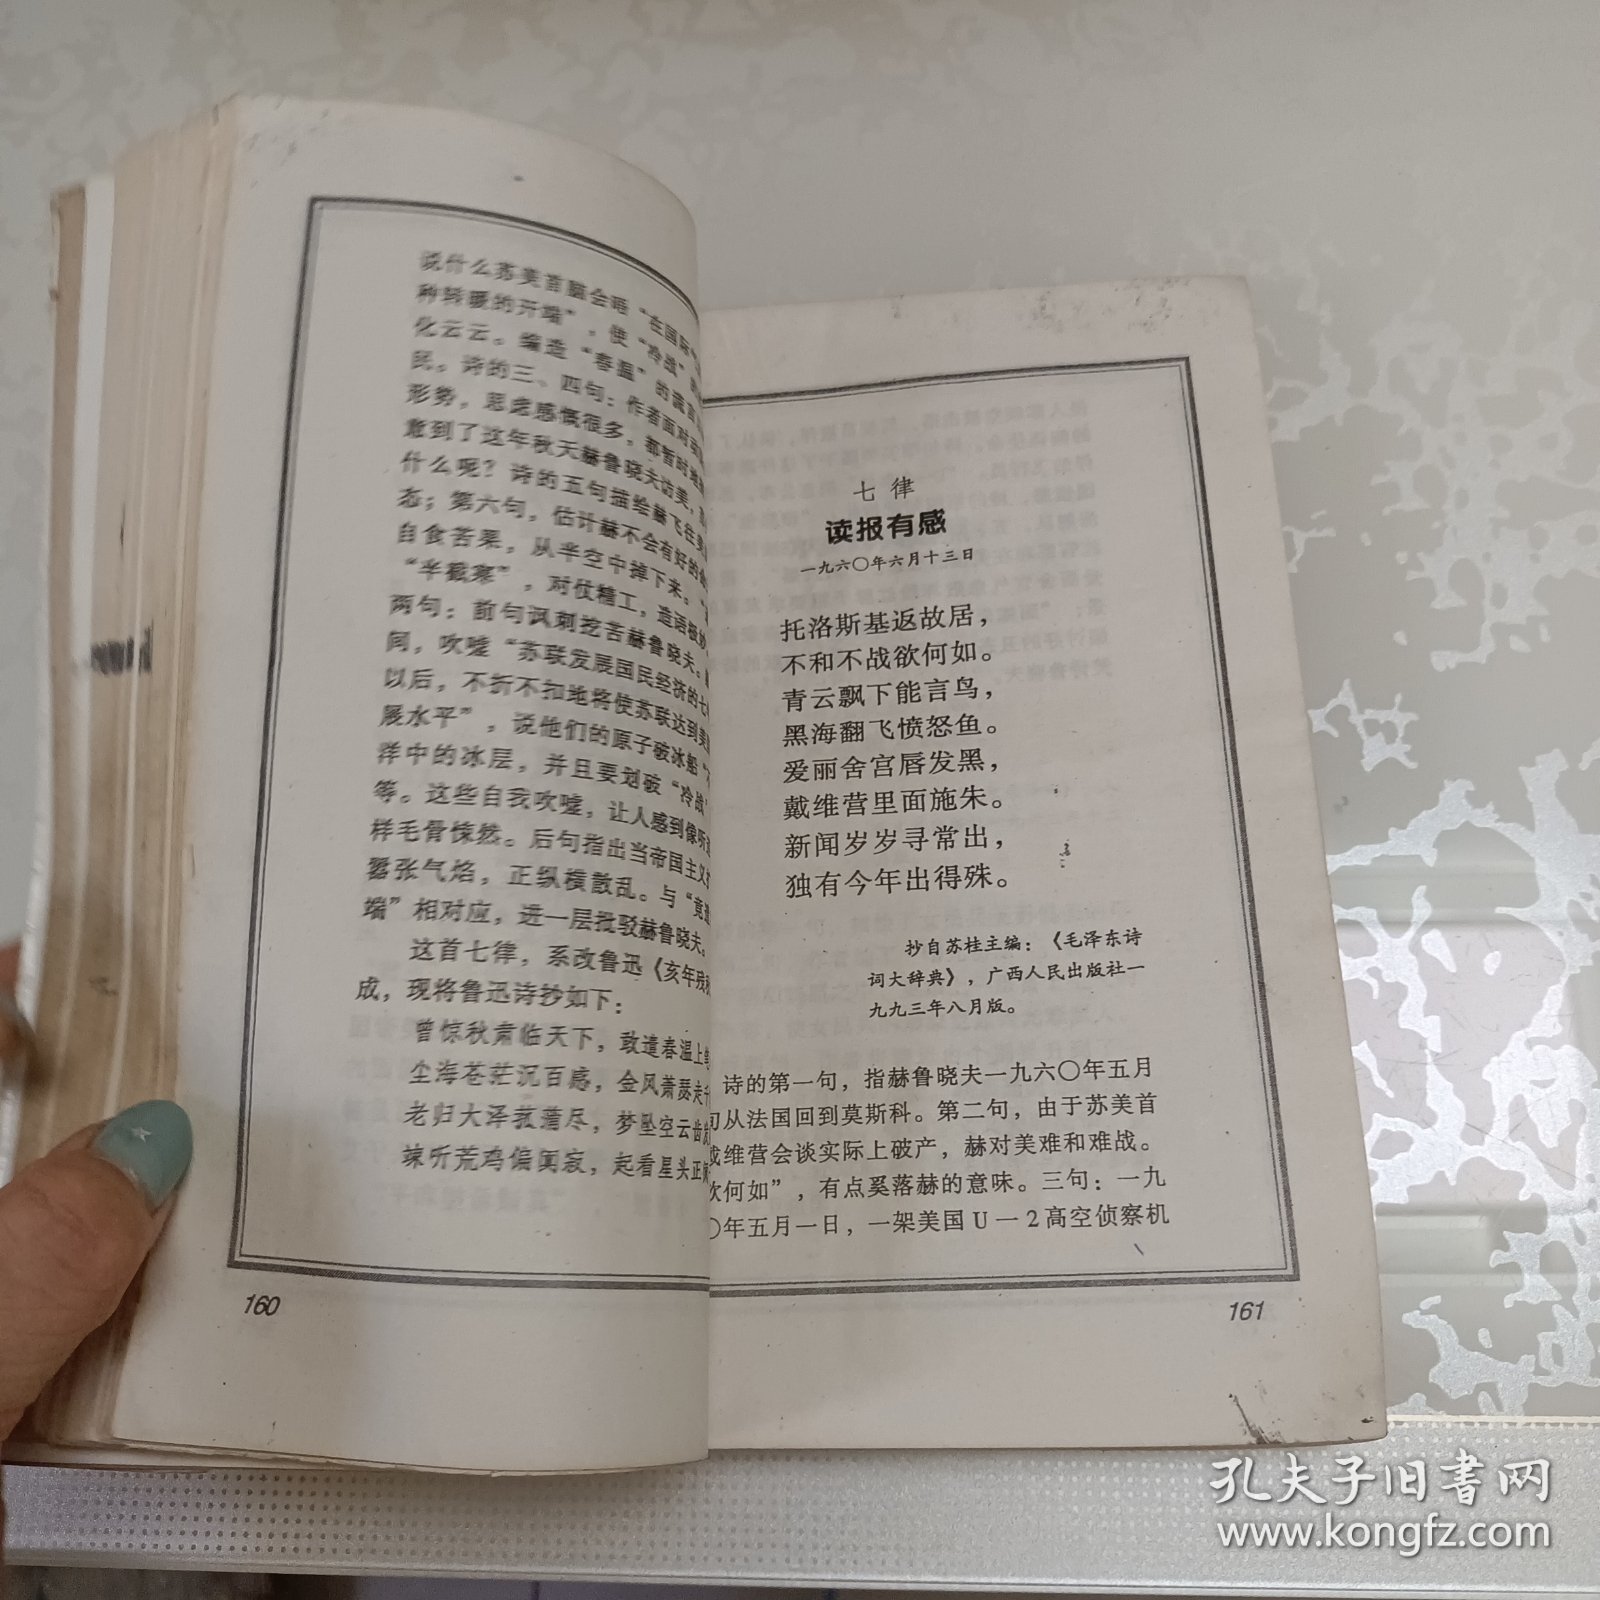 说什么苏美首脑会晤“在国际
种转暖的开端”，使“冷战”
化云云。编造“春温”的谎言
民。诗的三、四句：作者面对
形势，思虑感慨很多，都暂时
意到了这年秋天赫鲁晓夫访美，
什么呢？诗的五句描绘赫飞往美
态；第六句，估计赫不会有好的
自食苦果，从半空中掉下来。“
“半截寒”，对仗精工，造语极妙
两句：前句讽刺挖苦赫鲁晓夫。
间，吹嘘“苏联发展国民经济的七
以后，不折不扣地将使苏联达到美
展水平”，说他们的原子破冰船“
洋中的冰层，并且要划破“冷战”
等。这些自我吹嘘，让人感到像听
样毛骨悚然。后句指出当帝国主义
嚣张气焰，正纵横散乱。与“竟造
端”相对应，进一层批驳赫鲁晓夫。
这首七律，系改鲁迅《亥年残
成，现将鲁迅诗抄如下：
曾惊秋肃临天下，敢遣春温上
尘海苍茫沉百感，金风萧瑟走千
老归大泽菰蒲尽，梦坠空云齿发
竦听荒鸡偏阒寂，起看星头正
160
七律
读报有感
一九六〇年六月十三日
托洛斯基返故居，
不和不战欲何如。
青云飘下能言鸟，
黑海翻飞愤怒鱼。
爱丽舍宫唇发黑，
戴维营里面施朱。
新闻岁岁寻常出，
独有今年出得殊。
抄自苏桂主编：《毛泽东诗
词大辞典》，广西人民出版社一
九九三年八月版。
诗的第一句，指赫鲁晓夫一九六〇年五月
从法国回到莫斯科。第二句，由于苏美首
戴维营会谈实际上破产，赫对美难和难战。
欲何如”，有点奚落赫的意味。三句：一九
〇年五月一日，一架美国U—2高空侦察机
161
孔夫子旧书网
www.kongfz.com